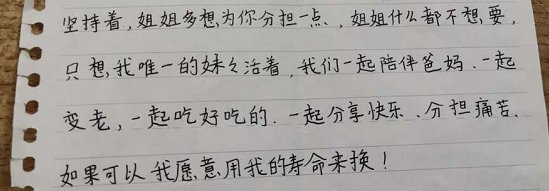 坚持着,姐姐多想为你分担一点、,姐姐什么都不想要,
只想我唯一的妹々活着,我们一起陪伴爸妈、一起
变老,一起吃好吃的、一起分享快乐、分担痛苦、
如果可以我愿意用我的寿命来换!